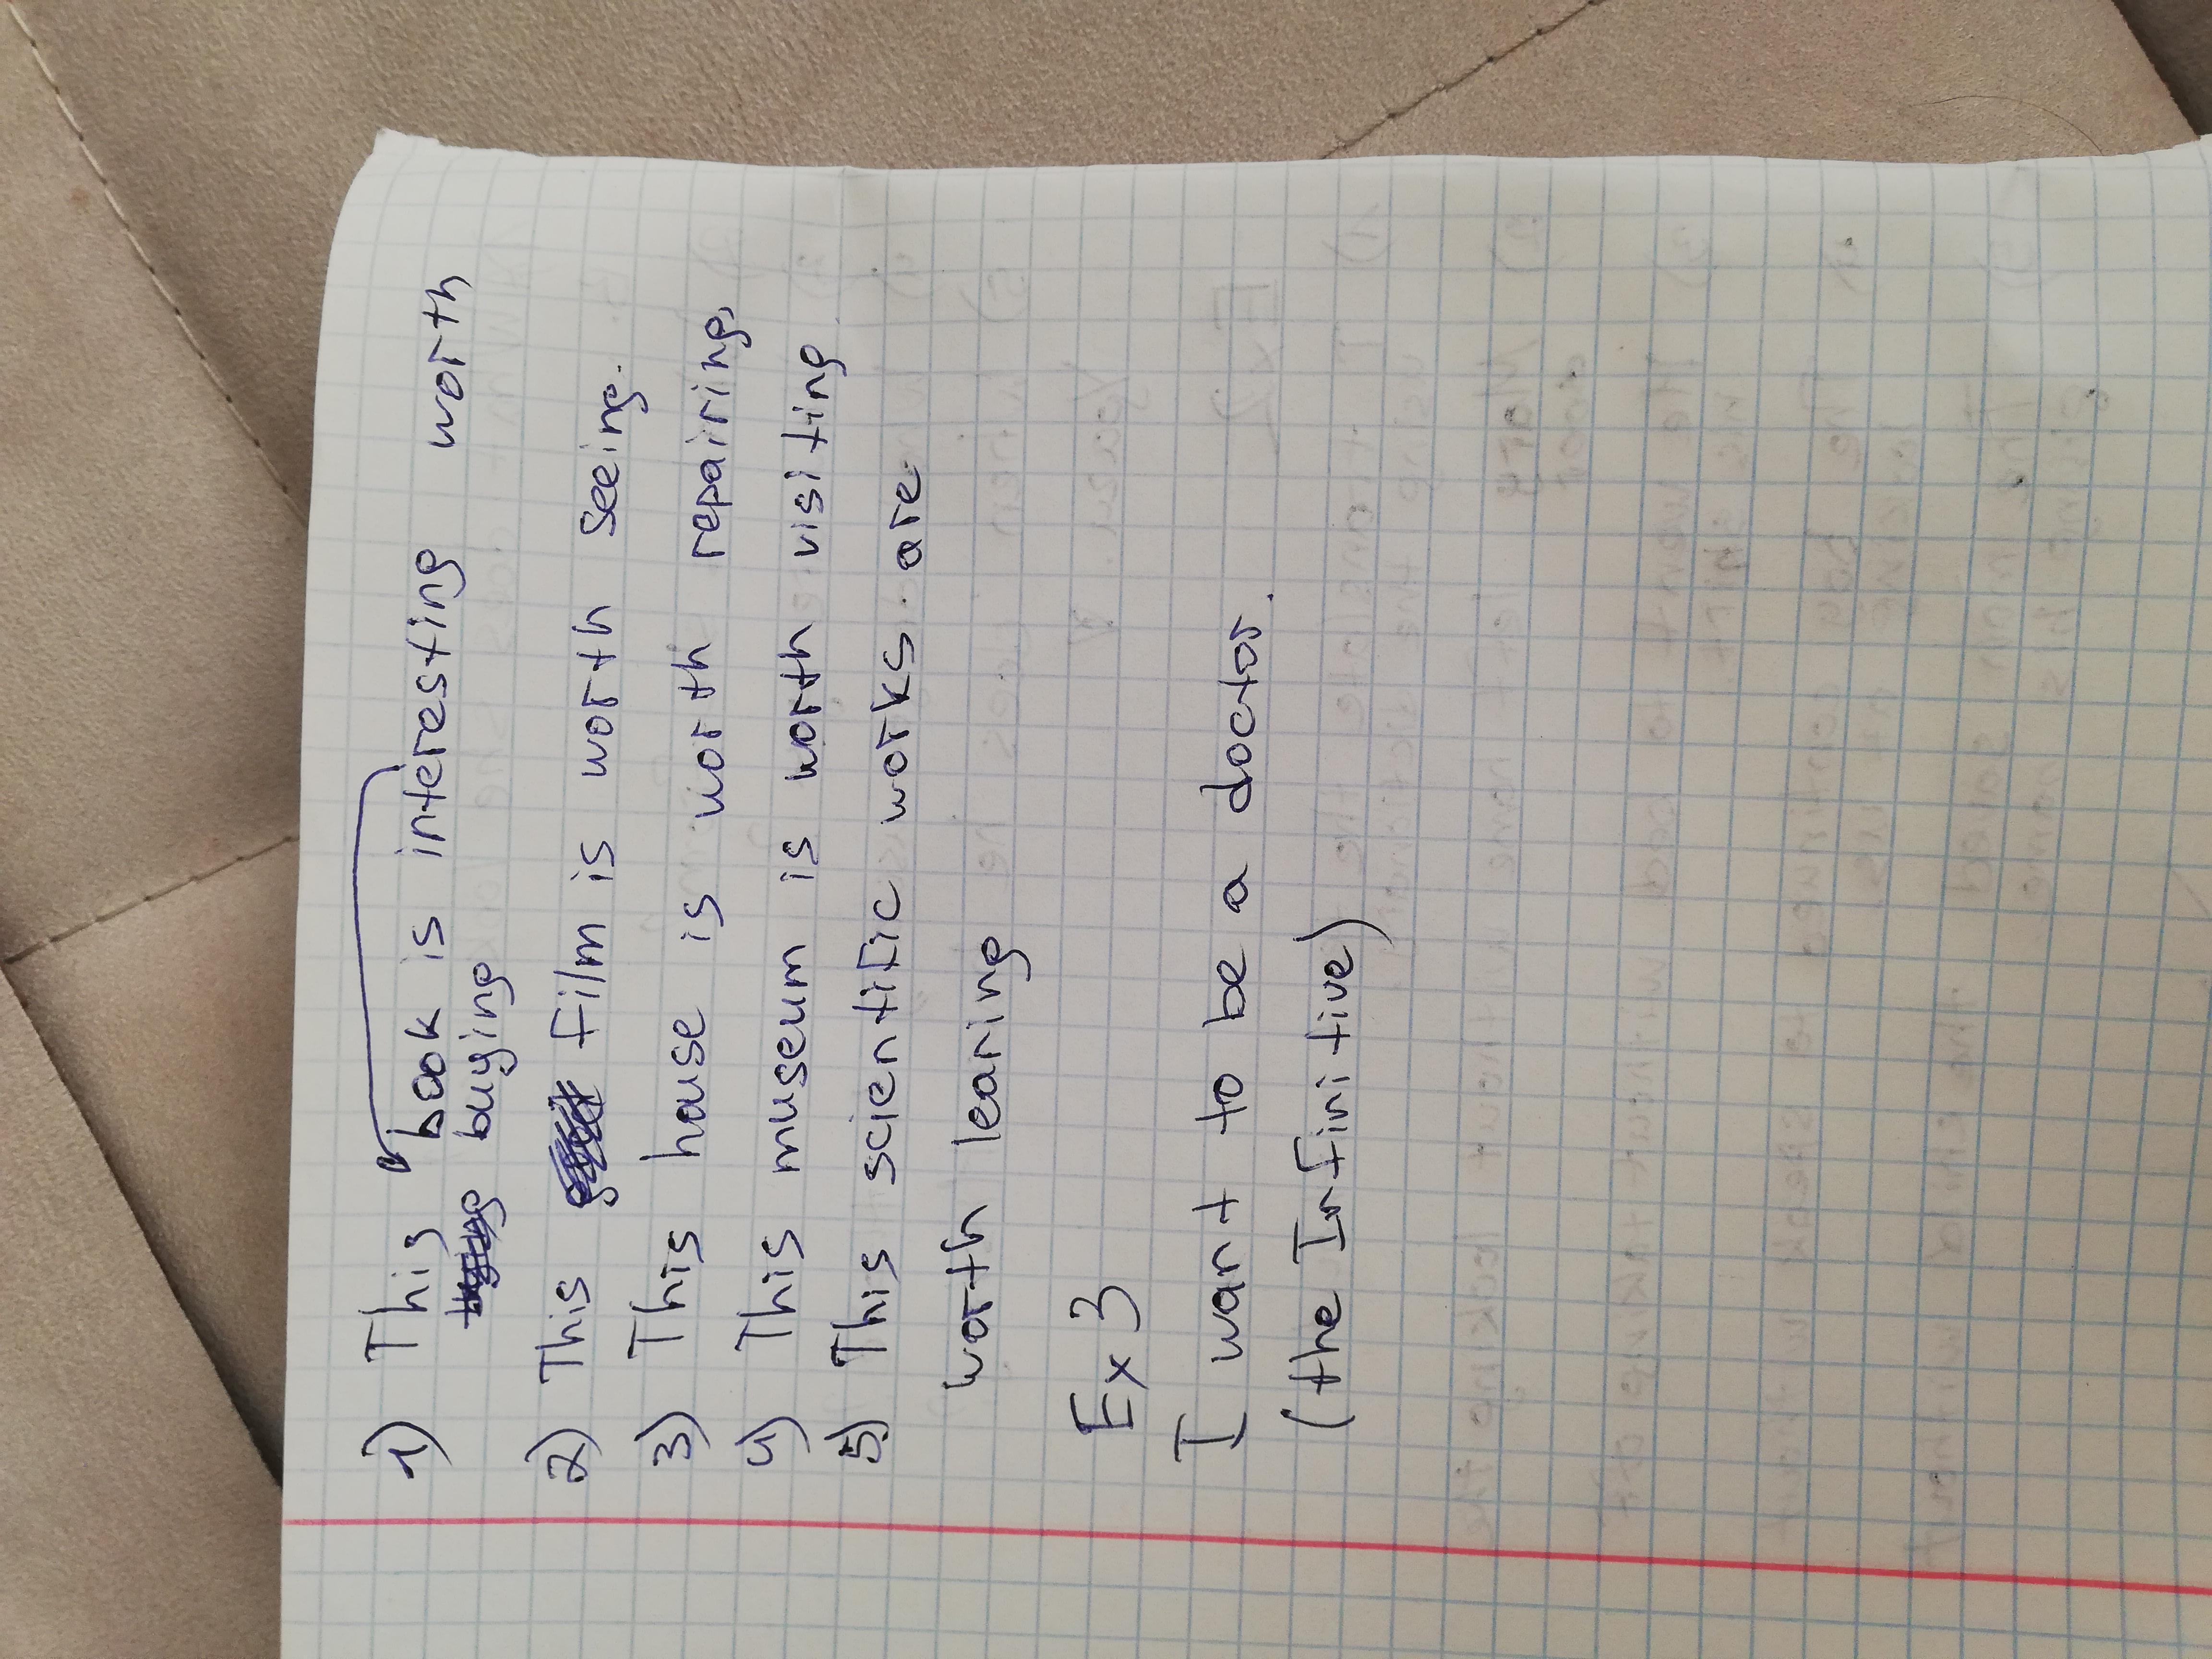 1) This book is interesting worth
buying
2) This film is worth seeing.
3) This house is worth repairing.
4) This museum is worth visiting
5) This scientific works are
worth learing
Ex 3
I want to be a doctor.
(the Infinitive)